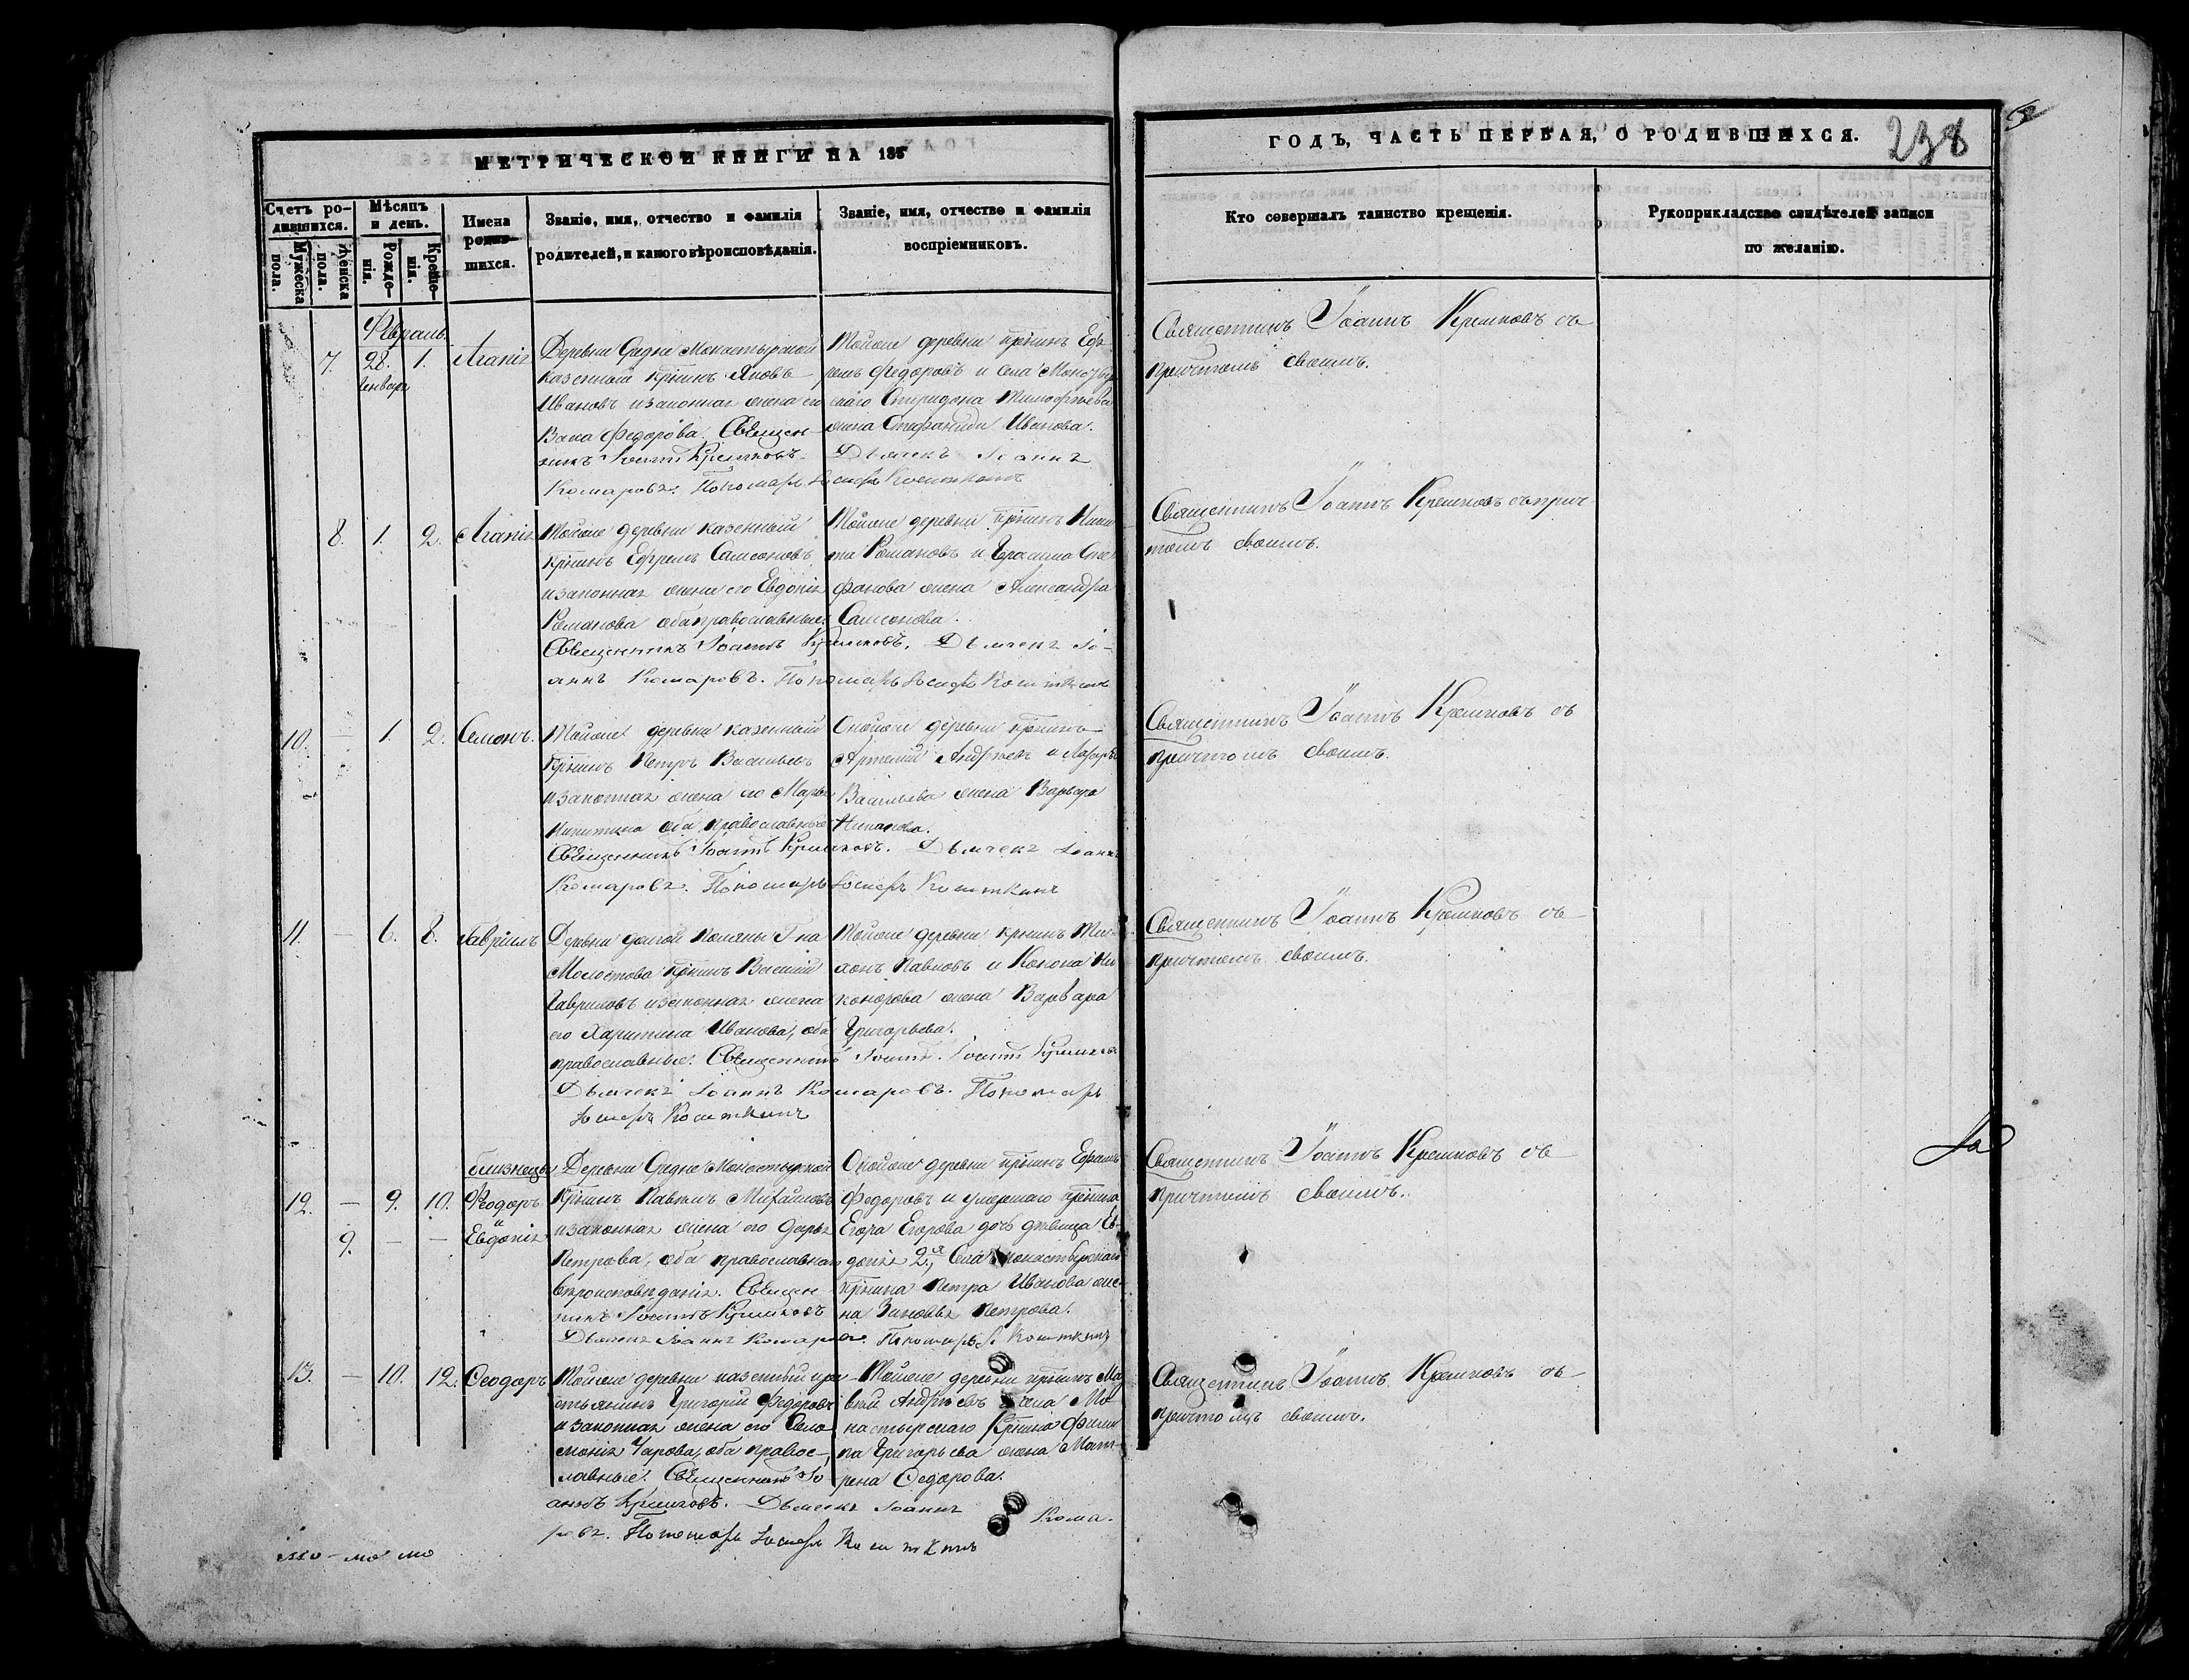 МЕТРИЧЕСКОЙ КНИГИ НА 185
ГОДЪ, ЧАСТЬ ПЕРВАЯ, О РОДИВШИХСЯ.
238
Счетъ ро-
дившихся.
Мужеска
пола.
Женска
пола.
Мѣсяцъ
и день.
Рожде-
нія.
Креще-
нія.
Имена
родив-
шихся.
Званіе, имя, отчество и фамилія
родителей, и какого вѣроисповѣданія.
Званіе, имя, отчество и фамилія
воспріемниковъ.
Кто совершалъ таинство крещенія.
Рукоприкладство свидѣтелей записи
по желанію.
Февраль
7. 28. 1. Агапія
Генваря
Деревни Средне Монастырской
казенный крѣнинъ Яковъ
Ивановъ изаконная жена его
Федорова. Священ-
никъ Іоаннъ
Комаровъ. Пономарь
Тойже деревни крѣнинъ Еф-
ремъ Федоровъ и села Монастыр
скаго Спиридона Тимофѣева
жена Стефанида Иванова.
Дьячекъ Іоаннъ
Священникъ Іоаннъ съ
причтомъ своимъ.
8. 1. 2. Агапія
Тойже деревни казенный
крѣнинъ Ефремъ Самсоновъ
изаконная жена его Евдокія
Романова оба православные
Священникъ Іоаннъ
Дьячекъ Іо-
аннъ Комаровъ. Пономарь
Тойже деревни крѣнинъ Ники
та Романовъ и Герасима Сте
фанова жена Александра
Самсонова.
Священникъ Іоаннъ съ прич-
томъ своимъ.
10. — 1. 2. Семенъ.
Тойже деревни казенный
крѣнинъ Петръ Васильевъ
изаконная жена его Марья
Никитина оба православные
Священникъ Іоаннъ
Дьячекъ Іоаннъ
Комаровъ. Пономарь
Онойже деревни крѣнинъ
Артемій Андреевъ и Лазаря
Васильева жена Варвара
Священникъ Іоаннъ съ
причтомъ своимъ.
11. — 6. 8. Гавріилъ
Деревни долгой Поляны Гна
Молоствова крѣнинъ Василій
Гавриловъ изаконная жена
его Харитина Иванова, оба
православные. Священникъ Іоаннъ
Дьячекъ Іоаннъ Комаровъ. Пономарь
Тойже деревни крѣнинъ Ти-
хонъ Павловъ и Конона Ни
конорова жена Варвара
Григорьева.
Священникъ Іоаннъ съ
причтомъ своимъ.
близнецы
12. — 9. 10. Феодоръ
и
9. — — Евдокія
Деревни Средне Монастырской
крѣнинъ Павелъ Михайловъ
изаконная жена его Дарья
Петрова, оба православнаго
вѣроисповѣданія. Священ
никъ Іоаннъ
Дьячекъ Іоаннъ Комаровъ. Пономарь
Онойже деревни крѣнинъ Ефремъ
Федоровъ и умершаго крѣнина
Егора Егорова дочь дѣвица Ев-
докія 2я, Села монастырскаго
крѣнина Петра Иванова же-
на Зиновья Петрова.
Священникъ Іоаннъ съ
причтомъ своимъ.
13. — 10. 12. Феодоръ
Тойже деревни казенный кре-
стьянинъ Григорій Федоровъ
изаконная жена его Соло
монія оба правос-
лавные. Священникъ Іо
аннъ Дьячекъ Іоаннъ Кома-
ровъ. Пономарь
Тойже деревни крѣнинъ Мат
вѣй Андреевъ и села Мо
настырскаго крѣнина Филип
па Григорьева жена Мат-
рена Федорова.
Священникъ Іоаннъ съ
причтомъ своимъ.